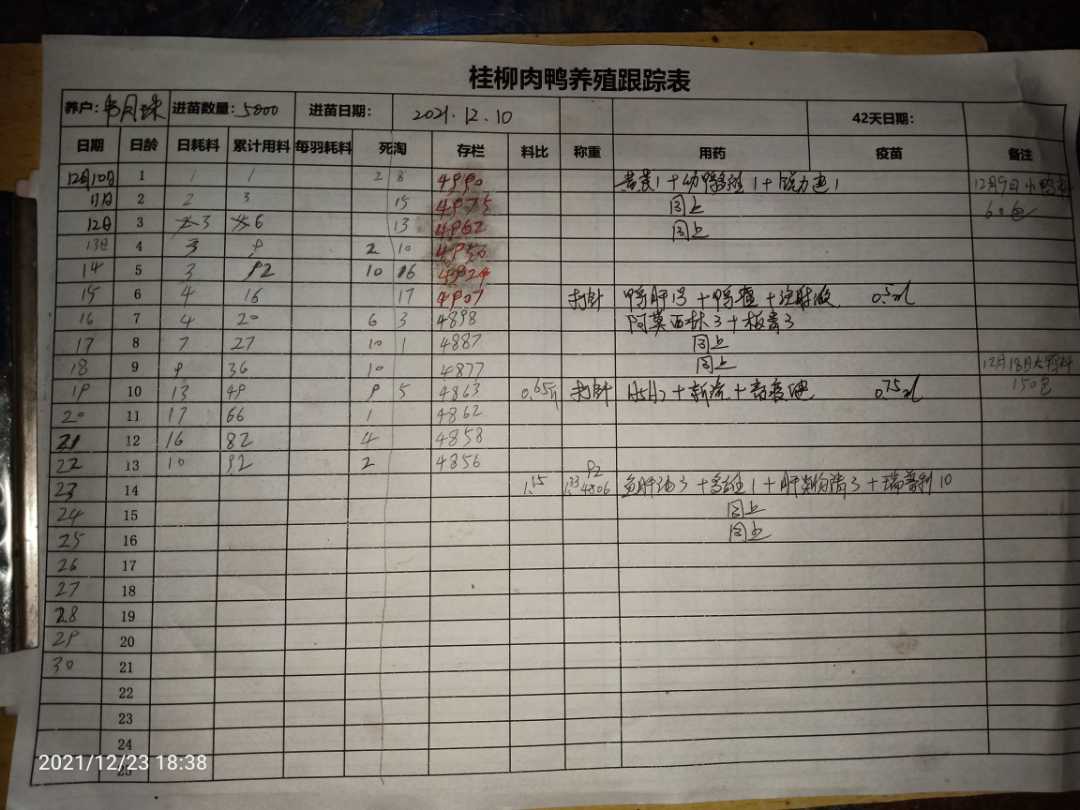 桂柳肉鸭养殖跟踪表
养户: 月珠 进苗数量: 5000 进苗日期: 2021.12.10 42天日期:
日期 日龄 日耗料 累计用料 每羽耗料 死淘 存栏 料比 称重 用药 疫苗 备注
12月10日 1 1 1 2 8 4990 12月9日小鸭料
11日 2 2 3 15 4975 同上 60包
12日 3 3 6 13 4962 同上
13日 4 3 9 2 10 4950
14 5 3 12 10 16 4924
15 6 4 16 17 4907 打针 鸭肝 + 鸭瘟 + 注射液 0.5ml
16 7 4 20 6 3 4898 阿莫西林3+板青3
17 8 7 27 10 1 4887 同上
18 9 9 36 10 4877 同上 12月18日大鸭料
19 10 13 49 9 5 4863 0.65斤 打针 H5H7+新流+ 0.75ml 150包
20 11 17 66 1 4862
21 12 16 82 4 4858
22 13 10 92 2 4856
23 14 1.15 1.33 92 4806 鱼肝油3+ 1+肝 3+瑞普利10
24 15 同上
25 16 同上
26 17
27 18
28 19
29 20
30 21
22
23
24
25
2021/12/23 18:38